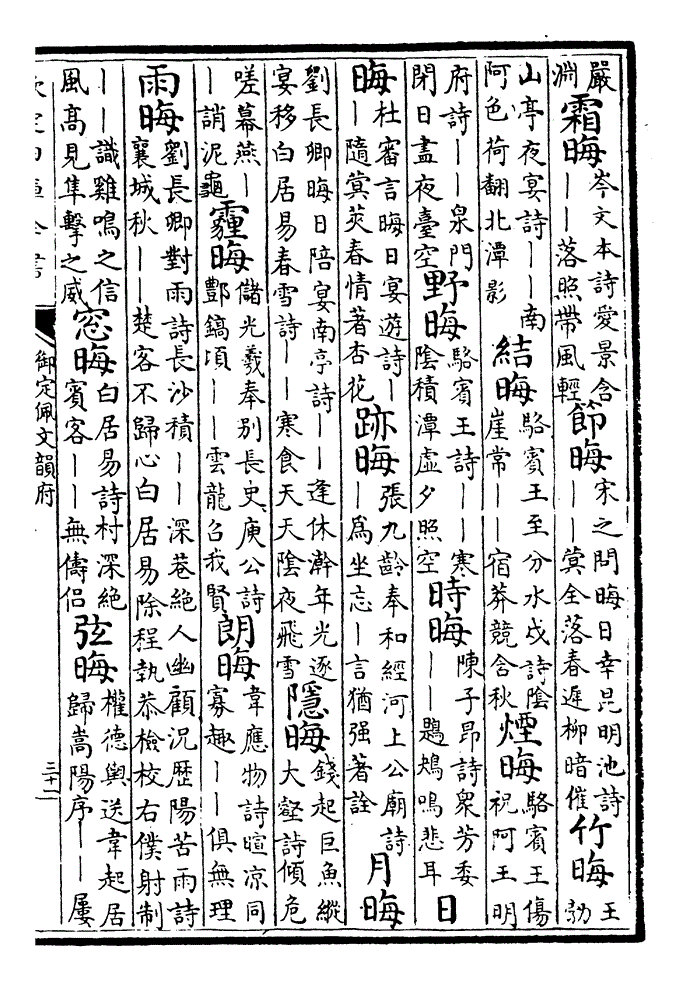 嚴淵霜晦岑文本詩愛景含——落照帶風輕節晦宋之問晦日幸昆明池詩——蓂全落春遲柳暗催竹晦王勃
山亭夜宴詩——南阿色荷翻北潭影結晦駱賓王至分水戍詩陰崖常——宿莽競含秋煙晦駱賓王傷祝阿王明
府詩——泉門閉日盡夜臺空野晦駱賓王詩——寒陰積潭虛夕照空時晦陳子昂詩衆芳委——鶗鴂鳴悲耳日
晦杜審言晦日宴遊詩——隨蓂莢春情著杏花跡晦張九齡奉和經河上公廟詩—爲坐忘—言猶强著詮月晦
劉長卿晦日陪宴南亭詩——逢休澣年光逐宴移白居易春雪詩——寒食天天陰夜飛雪隱晦錢起巨魚縱大壑詩傾危
嗟幕燕——誚泥龜霾晦儲光羲奉别長史庾公詩酆鎬頃——雲龍召我賢朗晦韋應物詩暄凉同寡趣——俱無理
雨晦劉長卿對雨詩長沙積——深巷絶人幽顧況歴陽苦雨詩襄城秋——楚客不歸心白居易除程執恭檢校右僕射制
——識雞鳴之信風高見隼擊之威窓晦白居易詩村深絶賓客——無儔侶弦晦權德輿送韋起居歸嵩陽序——屢
欽定四庫全書
御定佩文韻府
三十二